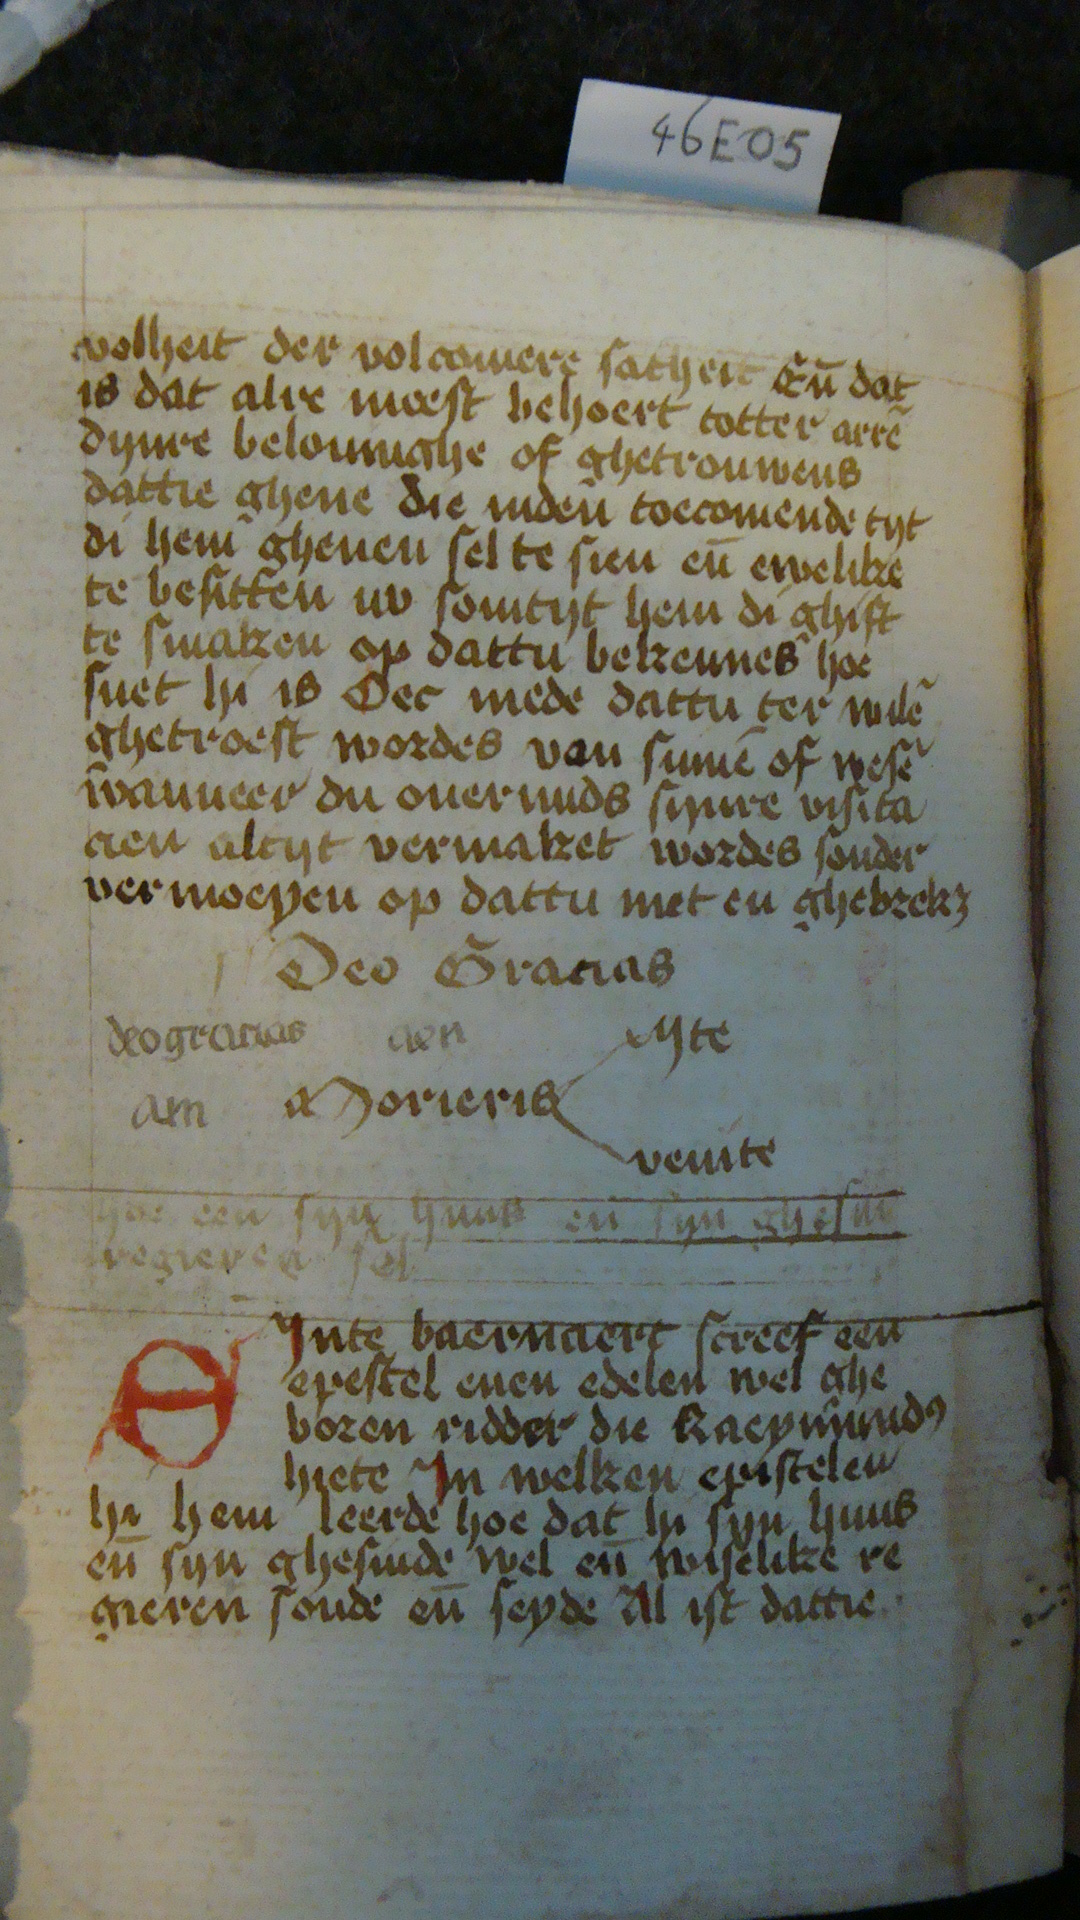 46E05
volheit der volcomere satheit Eñ dat
is dat alre meest behoert totter arrē
dynre belouinghe of ghetrouwens
dattie ghene die indeñ toecomende tyt
di hem gheuen sel te sien eñ ewelike
te besitten nv somtyt hem di ghift
te smaken op dattu bekennes hoe
suet hi is Oec mede dattu ter wilē
ghetroest wordes van sinnē of wesē
wanneer du ouermids synre visita
cien altyt vermaket wordes sonder
vermoeyen op dattu niet en ghebrekz
Deo Gracias
deogracias aen yte
am Morieris
venite
hoe een syn huus en syn ghesin
regieren sel
Sinte baernaert screef een
epestel enen edelen wel ghe
boren ridder die Raeymundꝰ
hiete In welken epistelen
hi hem leerde hoe dat hi syn huus
eñ syn ghesinde wel eñ wiselike re
gieren soude eñ seyde Al ist dattie